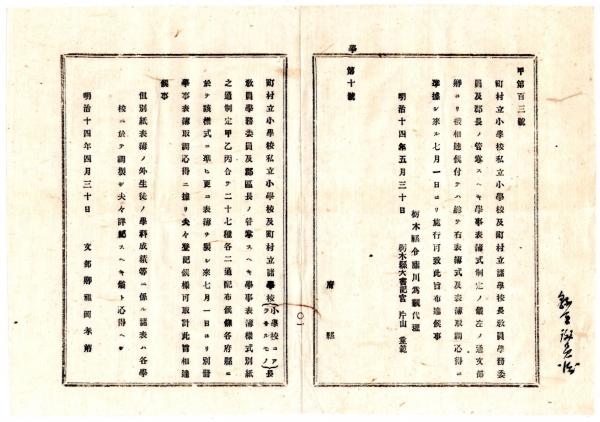 甲第百三號
町村立小學校私立小學校及町村立諸學校長敎員學務委
員及郡長ノ管掌スヘキ學事表簿式制定ノ儀左ノ通文部
卿ヨリ被相達候付テハ總テ右表簿式及表簿取調心得ニ
準據シ來ル七月一日ヨリ施行可致此旨布達候事
明治十四年五月三十日
栃木縣令藤川爲親代理
栃木縣大書記官 片山重範
學
第十號
府縣
町村立小學校私立小學校及町村立諸學校(小學校ニアラサルモノ)長
敎員學務委員及郡區長ノ管掌スヘキ學事表簿樣式別紙
之通制定甲乙丙合テ二十七種各二通配布候條各府縣ニ
於テ該樣式ニ準ヒ更ニ表簿ヲ製シ來七月一日ヨリ別冊
學事表簿取調心得ニ據リ夫々登記候樣可取計此旨相達
候事
但別紙表簿ノ外生徒ノ學科成績等ニ係ル諸表ハ各學
校ニ於テ調製シ夫々詳記スヘキ儀ト心得ヘシ
明治十四年四月三十日
文部卿福岡孝弟
〇一